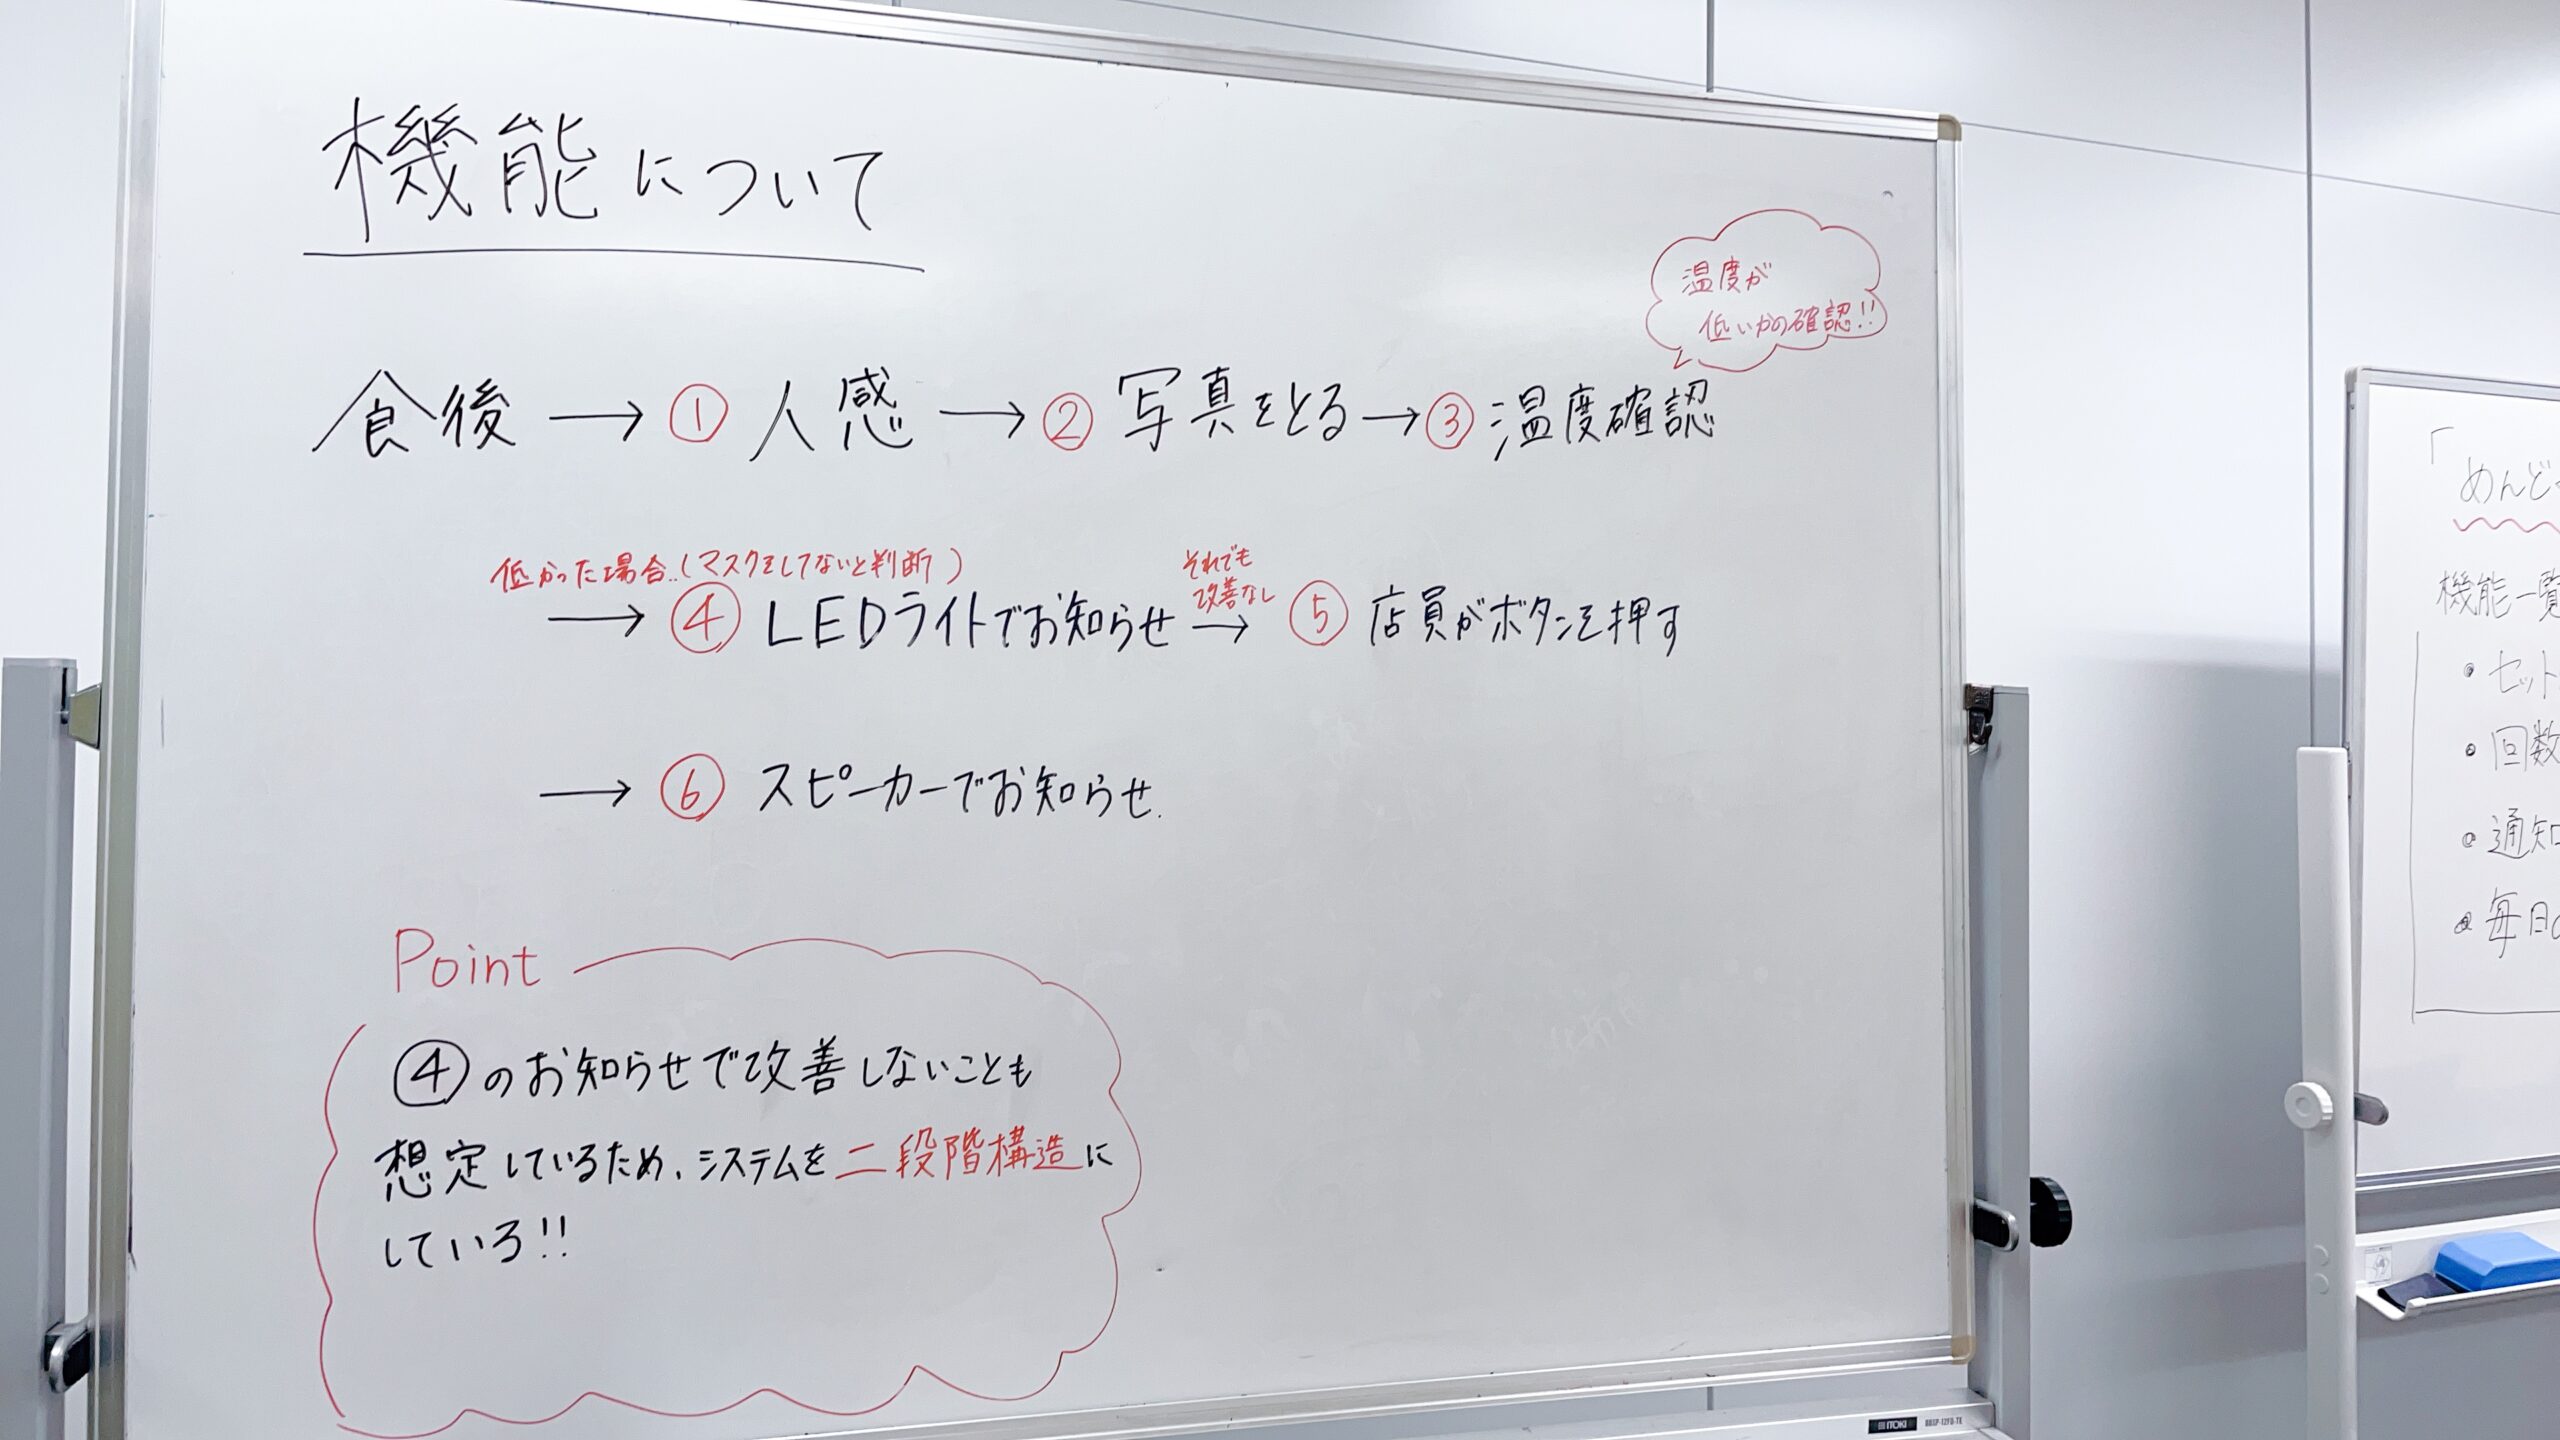 機能について
温度が
低いかの確認!!
食後 → ① 人感 → ② 写真をとる → ③ 温度確認
低かった場合..(マスクをしてないと判断)
それでも
改善なし
→ ④ LEDライトでお知らせ → ⑤ 店員がボタンを押す
→ ⑥ スピーカーでお知らせ.
Point
④のお知らせで改善しないことも
想定しているため、システムを二段階構造に
している!!
ITOKI
「
めんど
機能一覧
・セット
・回数
・通知
・毎日の